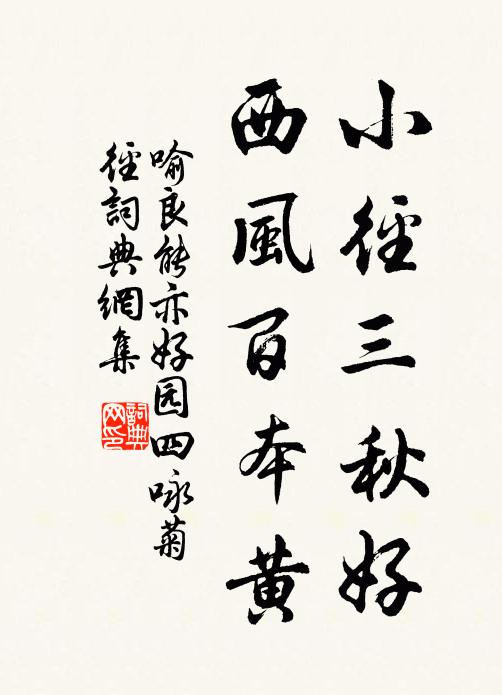 小徑三秋好
西風百本黃
喻良能亦好园四咏菊
徑詞典網集
詞典
网印